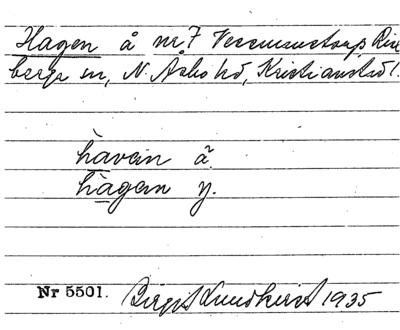 Hagen å nr 7 Vemmentorps Rise
berga sn, N. Åsbo hd, Kristianstad l.
håvein ä.
hågen y.
Nr 5501. Birgit Lundkvist 1935